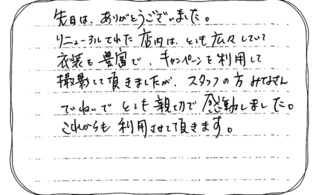 先日は、ありがとうございました。
リニューアルされた店内は、とても広々していて
衣装も豊富で、キャンペーンを利用して
撮影して頂きましたが、スタッフの方みなさん
ていねいでとても親切で感動しました。
これからも利用させて頂きます。